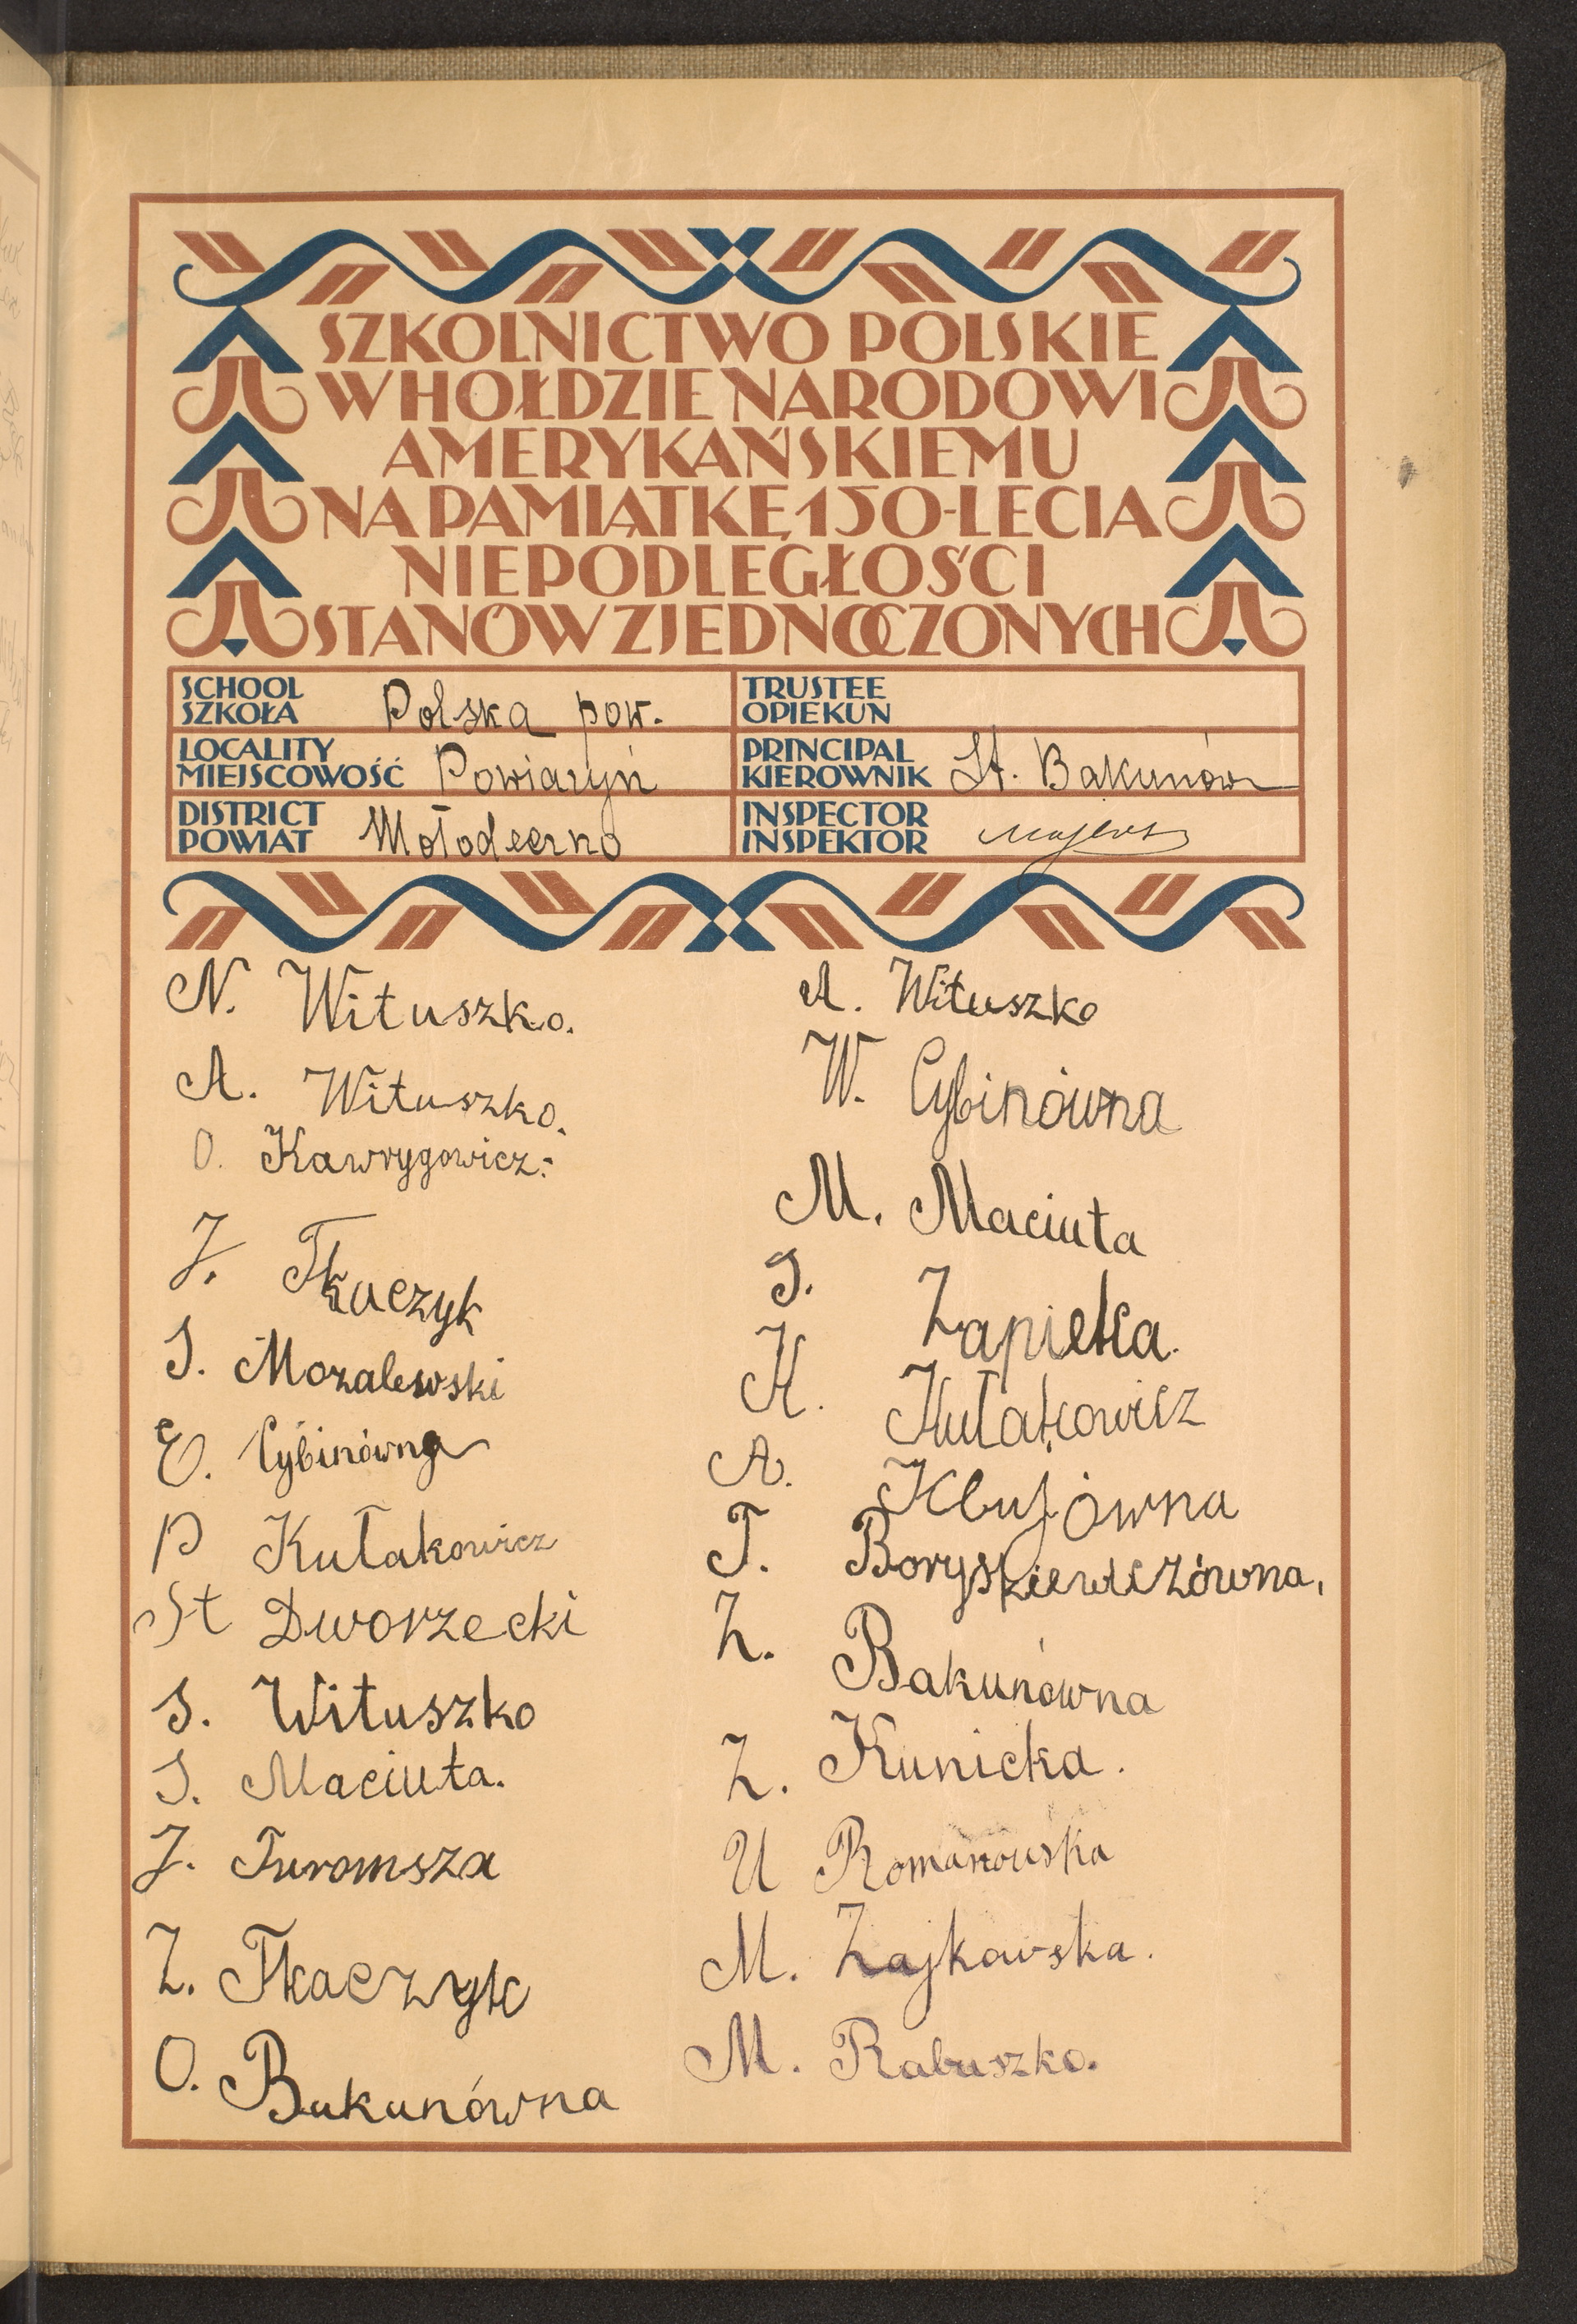 SZKOLNICTWO POLSKIE
W HOŁDZIE NARODOWI
AMERYKAŃSKIEMU
NA PAMIĄTKĘ 150-LECIA
NIEPODLEGŁOŚCI
STANÓW ZJEDNOCZONYCH
SCHOOL
SZKOŁA Polska pow.
TRUSTEE
OPIEKUN
LOCALITY
MIEJSCOWOŚĆ Powiazyń
PRINCIPAL
KIEROWNIK St. Bakunów
DISTRICT
POWIAT Mołodeczno
INSPECTOR
INSPEKTOR
N. Wituszko.
A. Wituszko.
O. Kawrygowicz.
J. Tkaczyk
S. Mozalewski
E. Cybinówna
P Kułakowicz
St Dworzecki
S. Wituszko
S. Maciuta.
J. Turomsza
Z. Tkaczyk
O. Bakunówna
A. Wituszko
W. Cybinówna
M. Maciuta
S. Zapiełka.
K. Kułakowicz
A. Kbujówna
T. Boryskiewiczówna.
Z. Bakunówna
Z. Kunicka.
U Romanowska
M. Zajkowska.
M. Rabuszko.